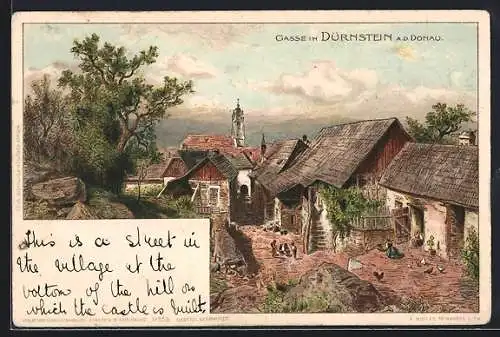 GASSE IN DÜRNSTEIN A.D. DONAU.
This is a street in
the village at the
bottom of the hill on
which the castle is built.